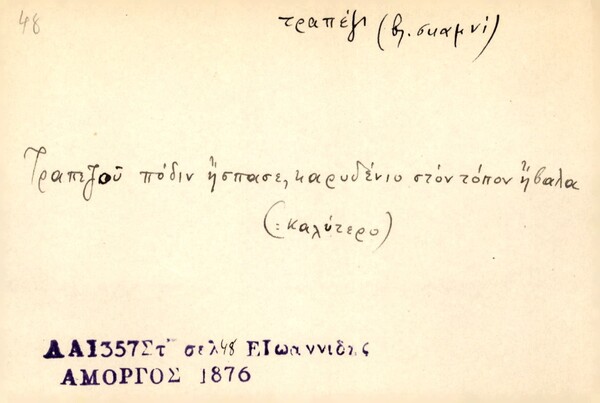 48
τραπέζι (βλ. σκαμνί)
Τραπεζοῦ πόδιν ἤσπασε, καρυδένιο στόν τόπον ἤβαλα
(: καλύτερο)
ΔΑΙ357Στ΄ σελ48 ΕΙωαννιδης
ΑΜΟΡΓΟΣ 1876